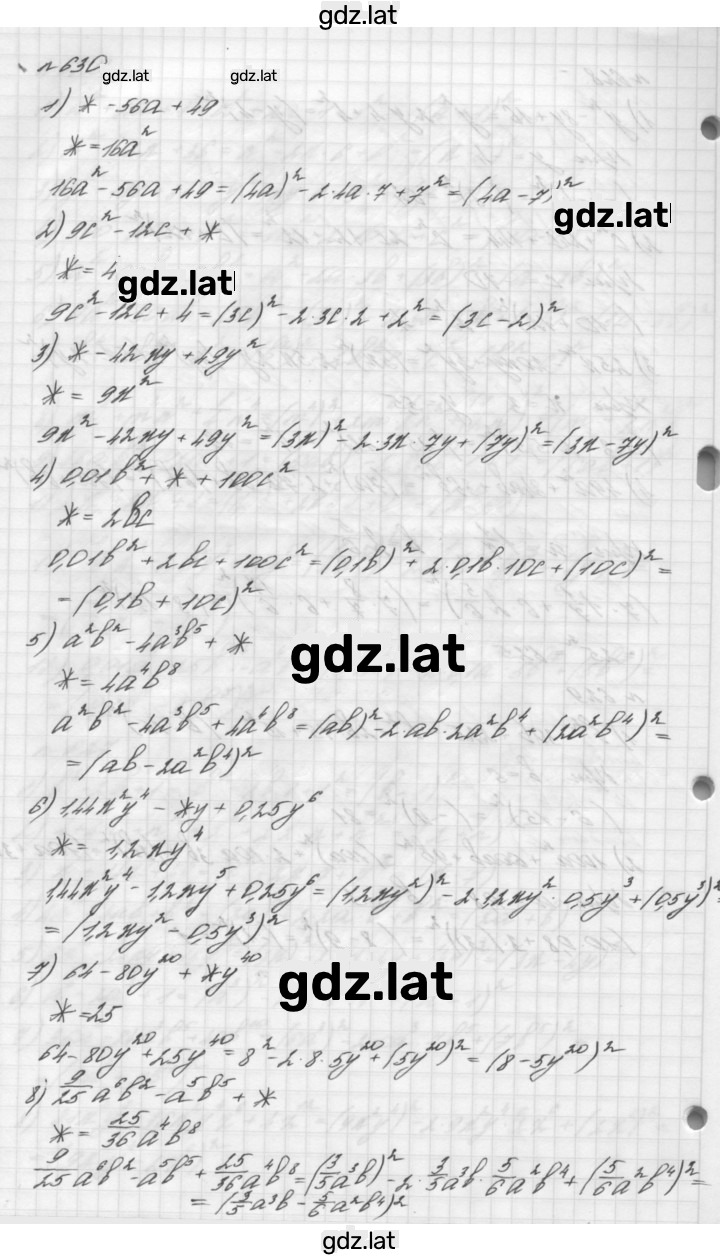 gdz.lat
n 630
gdz.lat gdz.lat
1) * - 56a + 49
* = 16a²
16a² - 56a + 49 = (4a)² - 2·4a·7 + 7² = (4a - 7)²
gdz.lat
2) 9c² - 12c + *
* = 4
gdz.lat
9c² - 12c + 4 = (3c)² - 2·3c·2 + 2² = (3c - 2)²
3) * - 42xy + 49y²
* = 9x²
9x² - 42xy + 49y² = (3x)² - 2·3x·7y + (7y)² = (3x - 7y)²
4) 0,01b² + * + 100c²
* = 2bc
0,01b² + 2bc + 100c² = (0,1b)² + 2·0,1b·10c + (10c)² =
= (0,1b + 10c)²
5) a²b² - 4a³b⁵ + *
gdz.lat
* = 4a⁴b⁸
a²b² - 4a³b⁵ + 4a⁴b⁸ = (ab)² - 2·ab·2a²b⁴ + (2a²b⁴)² =
= (ab - 2a²b⁴)²
6) 1,44x²y⁴ - *y + 0,25y⁶
* = 1,2xy⁴
1,44x²y⁴ - 1,2xy⁵ + 0,25y⁶ = (1,2xy²)² - 2·1,2xy²·0,5y³ + (0,5y³)² =
= (1,2xy² - 0,5y³)²
7) 64 - 80y²⁰ + *y⁴⁰
gdz.lat
* = 25
64 - 80y²⁰ + 25y⁴⁰ = 8² - 2·8·5y²⁰ + (5y²⁰)² = (8 - 5y²⁰)²
8) 9/25 a⁶b² - a⁵b⁵ + *
* = 25/36 a⁴b⁸
9/25 a⁶b² - a⁵b⁵ + 25/36 a⁴b⁸ = (3/5 a³b)² - 2·3/5 a³b·5/6 a²b⁴ + (5/6 a²b⁴)² =
= (3/5 a³b - 5/6 a²b⁴)²
gdz.lat